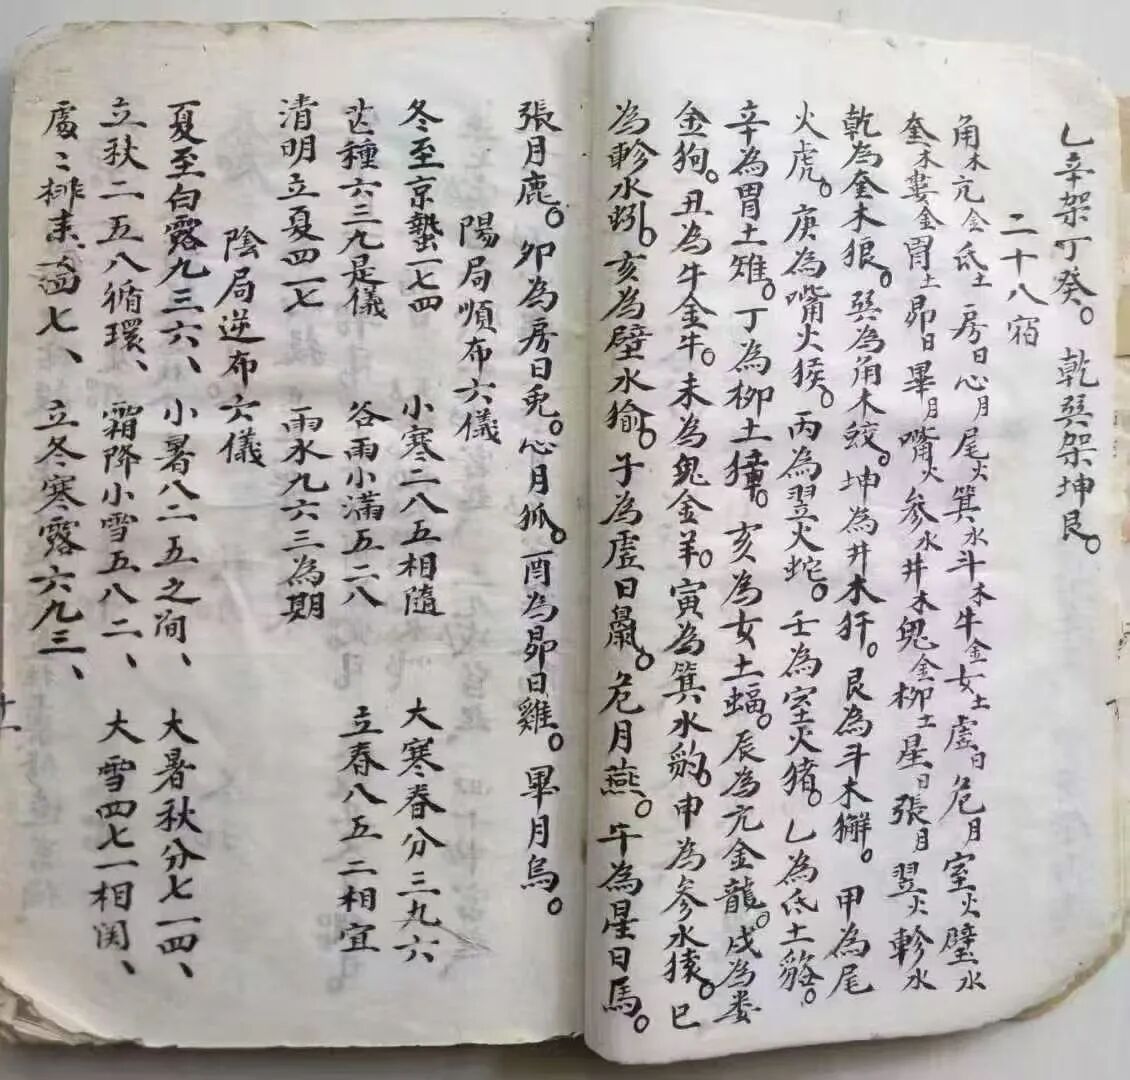 乙辛架丁癸。 乾巽架坤艮。
二十八宿
角木亢金氐土房日心月尾火箕水斗木牛金女土虛日危月室火壁水
奎木婁金胃土昴日畢月嘴火參水井木鬼金柳土星日張月翌火軫水
乾為奎木狼。巽為角木蛟。坤為井木犴。艮為斗木獬。甲為尾
火虎。庚為嘴火猴。丙為翌火蛇。壬為室火猪。乙為氐土貉。
辛為胃土雉。丁為柳土獐。亥為女土蝠。辰為亢金龍。戌為娄
金狗。丑為牛金牛。未為鬼金羊。寅為箕水豹。申為參水猿。巳
為軫水蚓。亥為壁水㺄。子為虛日鼠。危月燕。午為星日馬。
張月鹿。卯為房日兎。心月狐。酉為昴日雞。畢月烏。
陽局順布六儀
冬至京蟄一七四 小寒二八五相隨 大寒春分三九六
芒種六三九是儀 谷雨小滿五二八 立春八五二相宜
清明立夏四一七 雨水九六三為期
陰局逆布六儀
夏至白露九三六、小暑八二五之间、大暑秋分七一四、
立秋二五八循環、霜降小雪五八二、大雪四七一相関、
處〻排来一四七、立冬寒露六九三、
十一